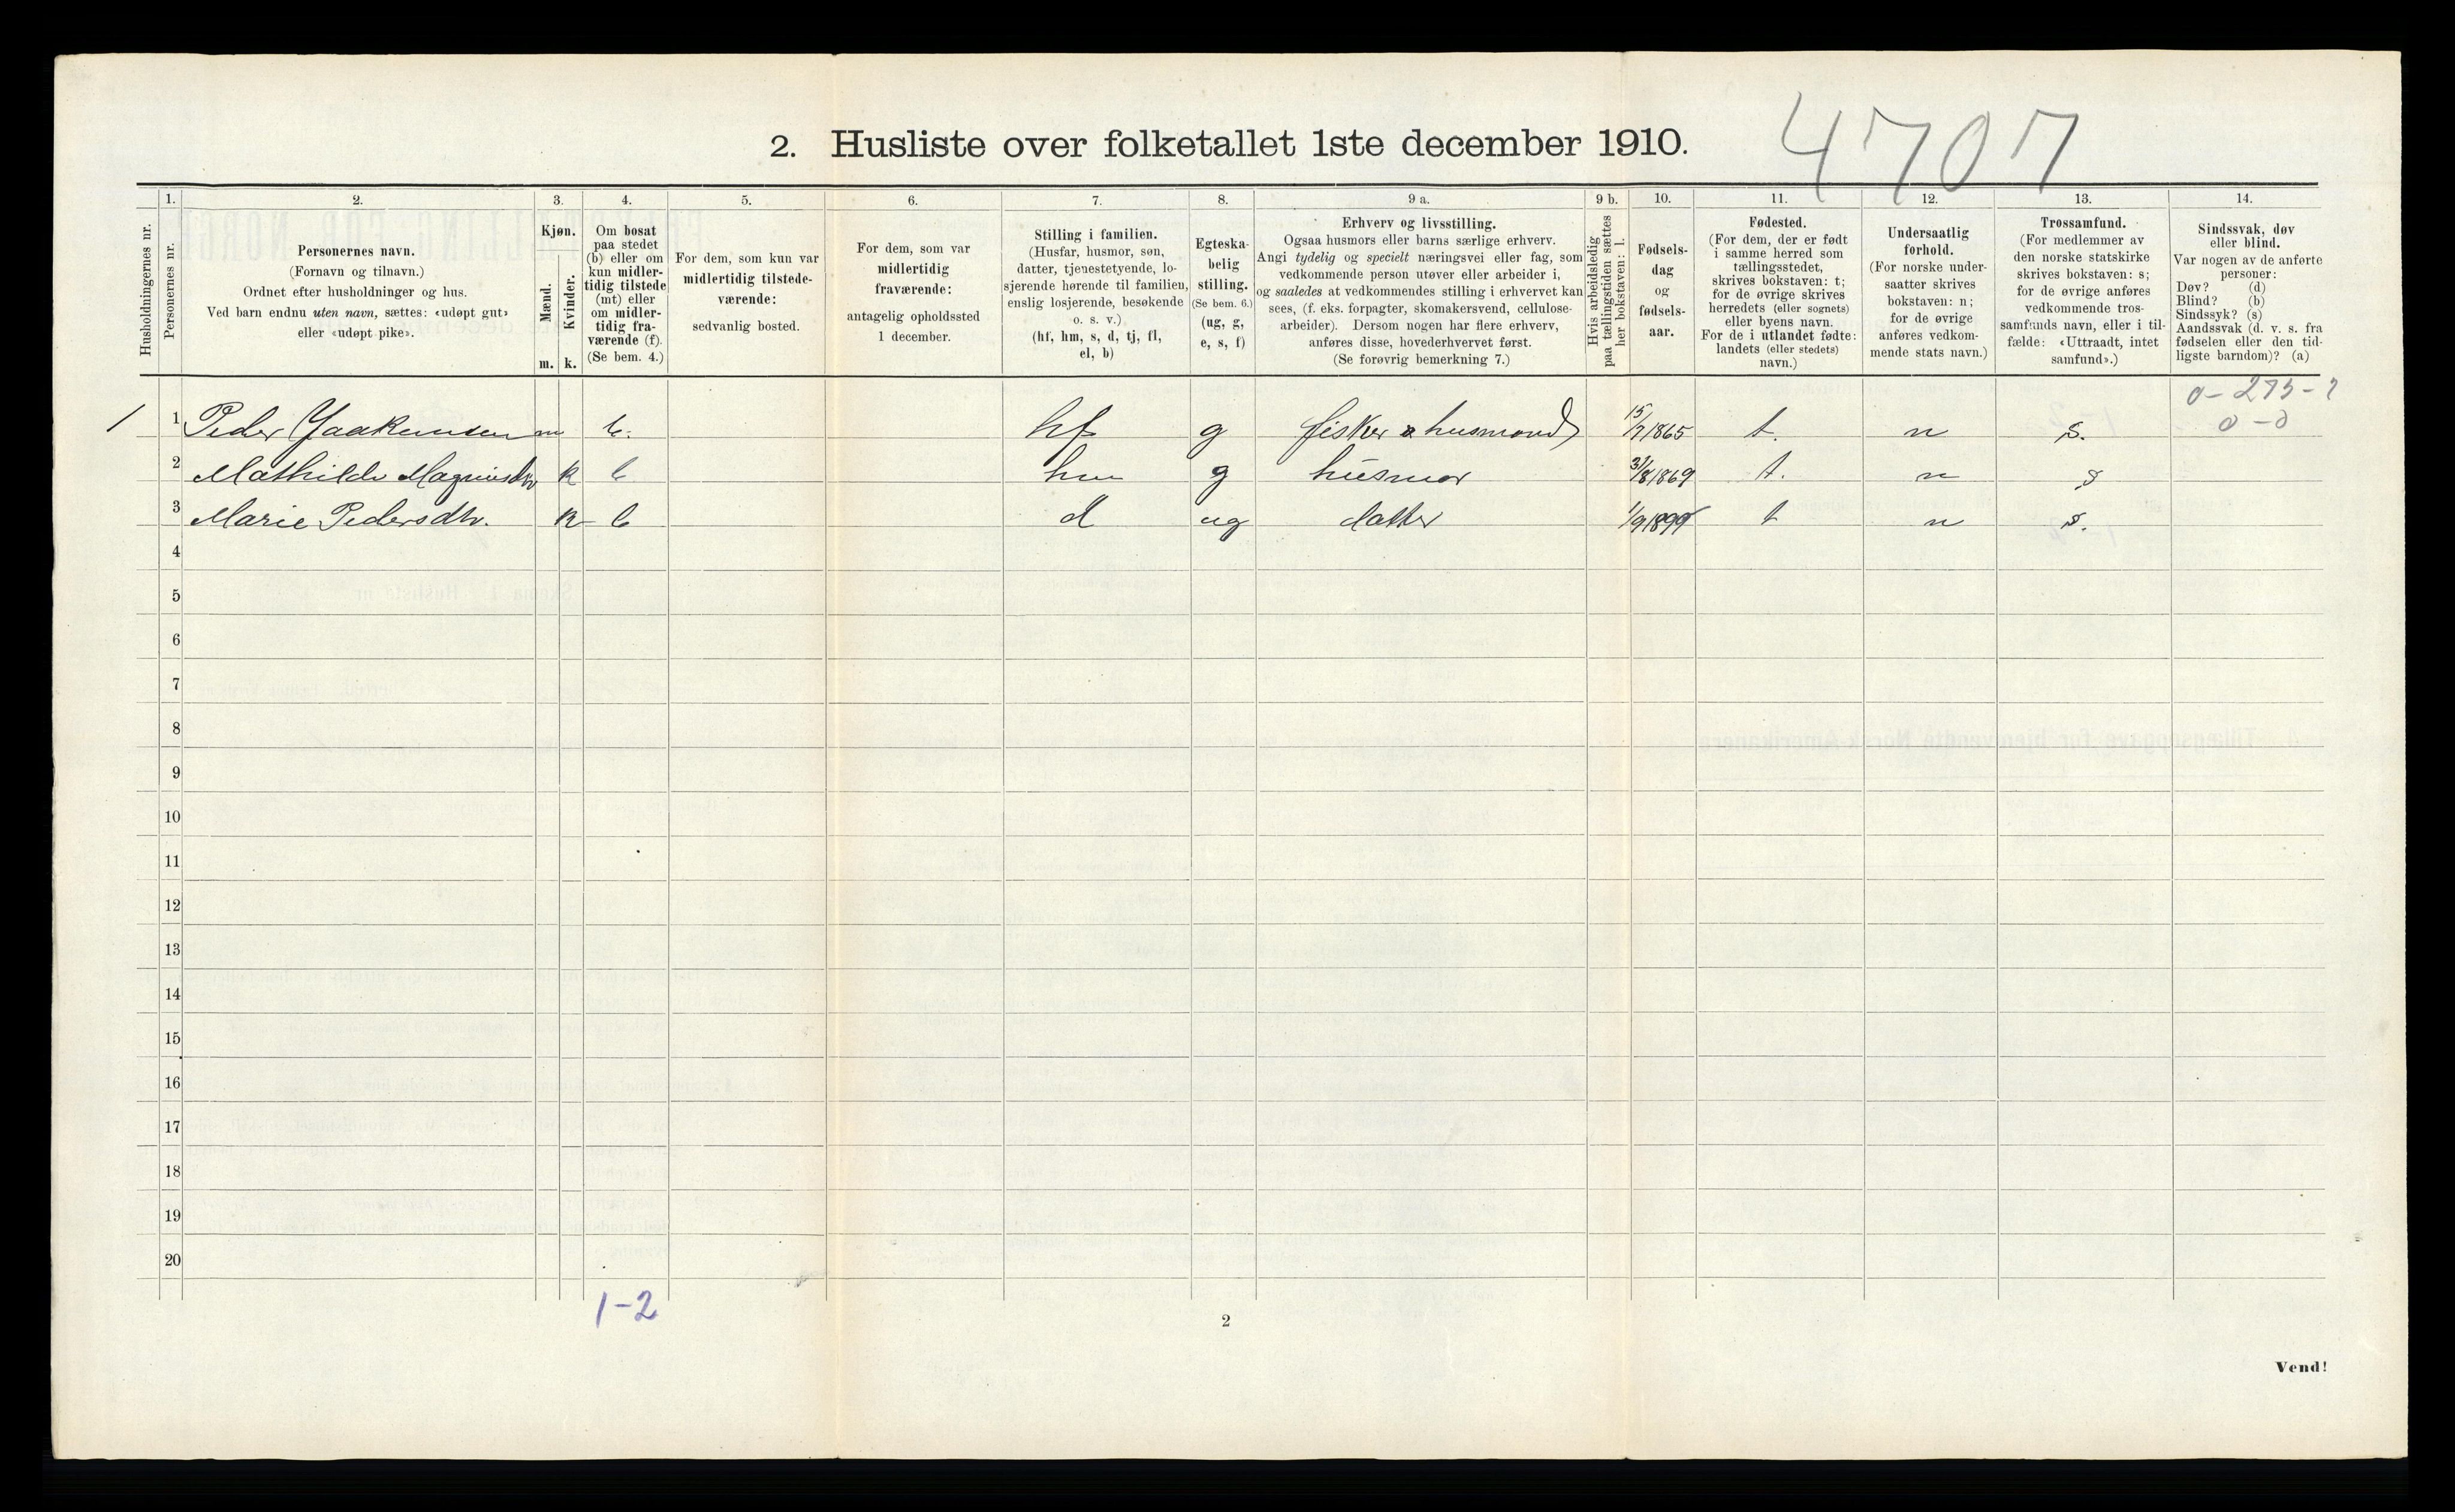 2. Husliste over folketallet 1ste december 1910.
4707
Husholdningernes nr.
1.
Personernes nr.
2.
Personernes navn.
(Fornavn og tilnavn.)
Ordnet efter husholdninger og hus.
Ved barn endnu uten navn, sættes: «udøpt gut»
eller «udøpt pike».
3.
Kjøn.
Mænd.
Kvinder.
m. k.
4.
Om bosat
paa stedet
(b) eller om
kun midler-
tidig tilstede
(mt) eller
om midler-
tidig fra-
værende (f).
(Se bem. 4.)
5.
For dem, som kun var
midlertidig tilstede-
værende:
sedvanlig bosted.
6.
For dem, som var
midlertidig
fraværende:
antagelig opholdssted
1 december.
7.
Stilling i familien.
(Husfar, husmor, søn,
datter, tjenestetyende, lo-
sjerende hørende til familien,
enslig losjerende, besøkende
o. s. v.)
(hf, hm, s, d, tj, fl,
el, b)
8.
Egteska-
belig
stilling.
(Se bem. 6.)
(ug, g,
e, s, f)
9 a.
Erhverv og livsstilling.
Ogsaa husmors eller barns særlige erhverv.
Angi tydelig og specielt næringsvei eller fag, som
vedkommende person utøver eller arbeider i,
og saaledes at vedkommendes stilling i erhvervet kan
sees, (f. eks. forpagter, skomakersvend, cellulose-
arbeider). Dersom nogen har flere erhverv,
anføres disse, hovederhvervet først.
(Se forøvrig bemerkning 7.)
9 b.
Hvis arbeidsledig
paa tællingstiden sættes
her bokstaven: l.
10.
Fødsels-
dag
og
fødsels-
aar.
11.
Fødested.
(For dem, der er født
i samme herred som
tællingsstedet,
skrives bokstaven: t;
for de øvrige skrives
herredets (eller sognets)
eller byens navn.
For de i utlandet fødte:
landets (eller stedets)
navn.)
12.
Undersaatlig
forhold.
(For norske under-
saatter skrives
bokstaven: n;
for de øvrige
anføres vedkom-
mende stats navn.)
13.
Trossamfund.
(For medlemmer av
den norske statskirke
skrives bokstaven: s;
for de øvrige anføres
vedkommende tros-
samfunds navn, eller i til-
fælde: «Uttraadt, intet
samfund».)
14.
Sindssvak, døv
eller blind.
Var nogen av de anførte
personer:
Døv? (d)
Blind? (b)
Sindssyk? (s)
Aandssvak (d. v. s. fra
fødselen eller den tid-
ligste barndom)? (a)
0-0
1 1 Peder Jaakumsen m b. hf g fisker & husmand 15/7 1865 t. n s.
2 Mathilde Magnusdtr k b hm g husmor 31/8 1869 t. n s
3 Marie Pedersdtr. k b d ug datter 1/9 1899 t n s.
4
5
6
7
8
9
10
11
12
13
14
15
16
17
18
19
20
1-2
2
Vend!